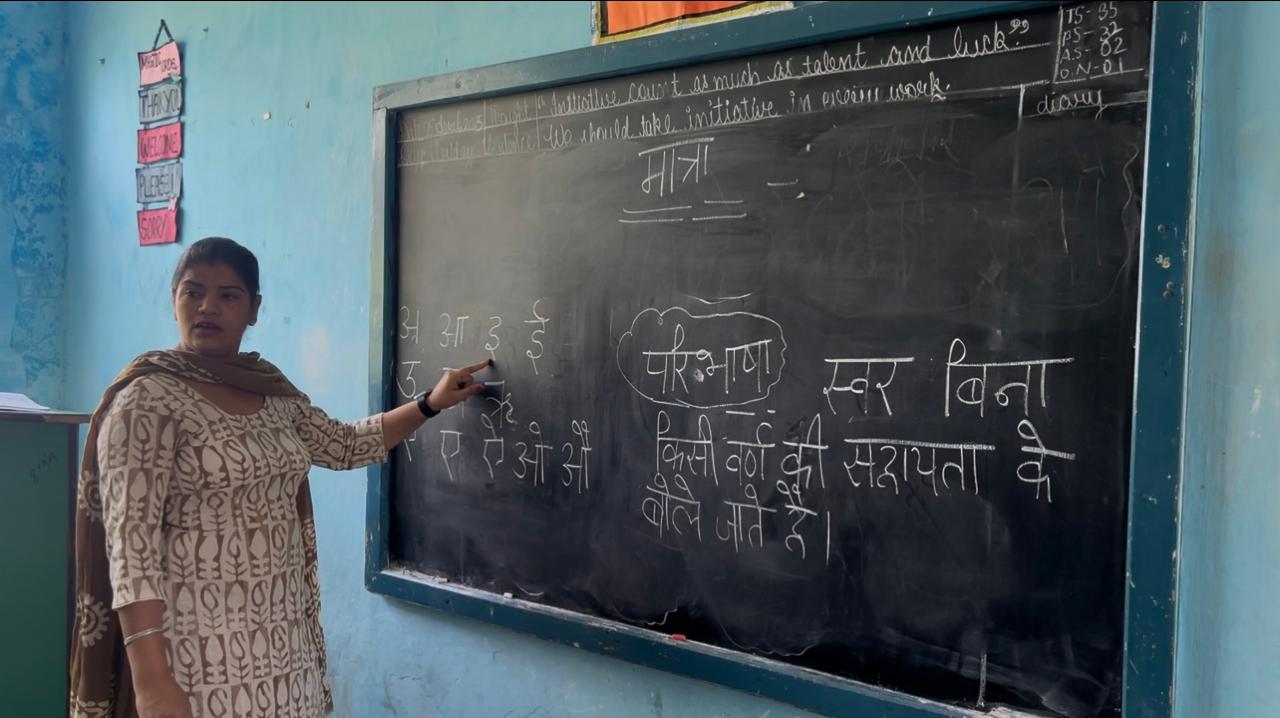 MAGIC WORDS
THANK YOU
WELCOME
PLEASE!!
SORRY
Thought "Initiative count as much as talent and luck"
We should take initiative in every work.
TS-35
PS-32
A.S-02
O.N-01
diary
मात्रा
अ आ इ ई
उ
ऋ
ए ऐ ओ औ
परिभाषा स्वर बिना
किसी वर्ण की सहायता के
बोले जाते है।